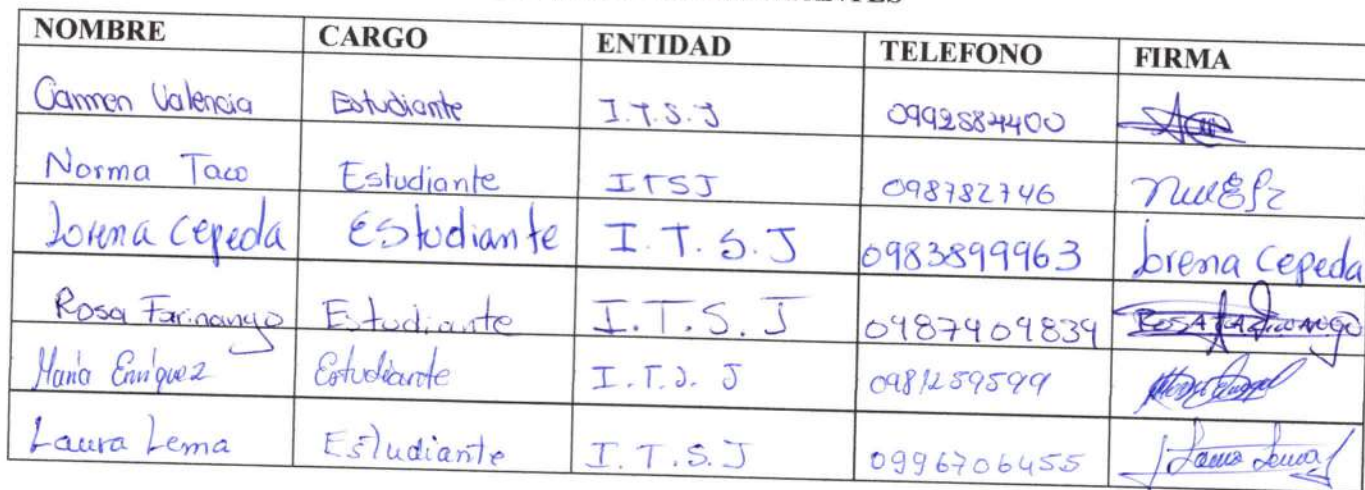 NOMBRE CARGO ENTIDAD TELEFONO FIRMA
Carmen Valencia Estudiante I.T.S.J 0992584400
Norma Taco Estudiante ITSJ 098782746
Lorena Cepeda Estudiante I.T.S.J 0983899963 Lorena Cepeda
Rosa Farinango Estudiante I.T.S.J 0987909839 ROSA FARINANGO
María Enríquez Estudiante I.T.S.J 0981259599
Laura Lema Estudiante I.T.S.J 0996706455 Laura Lema